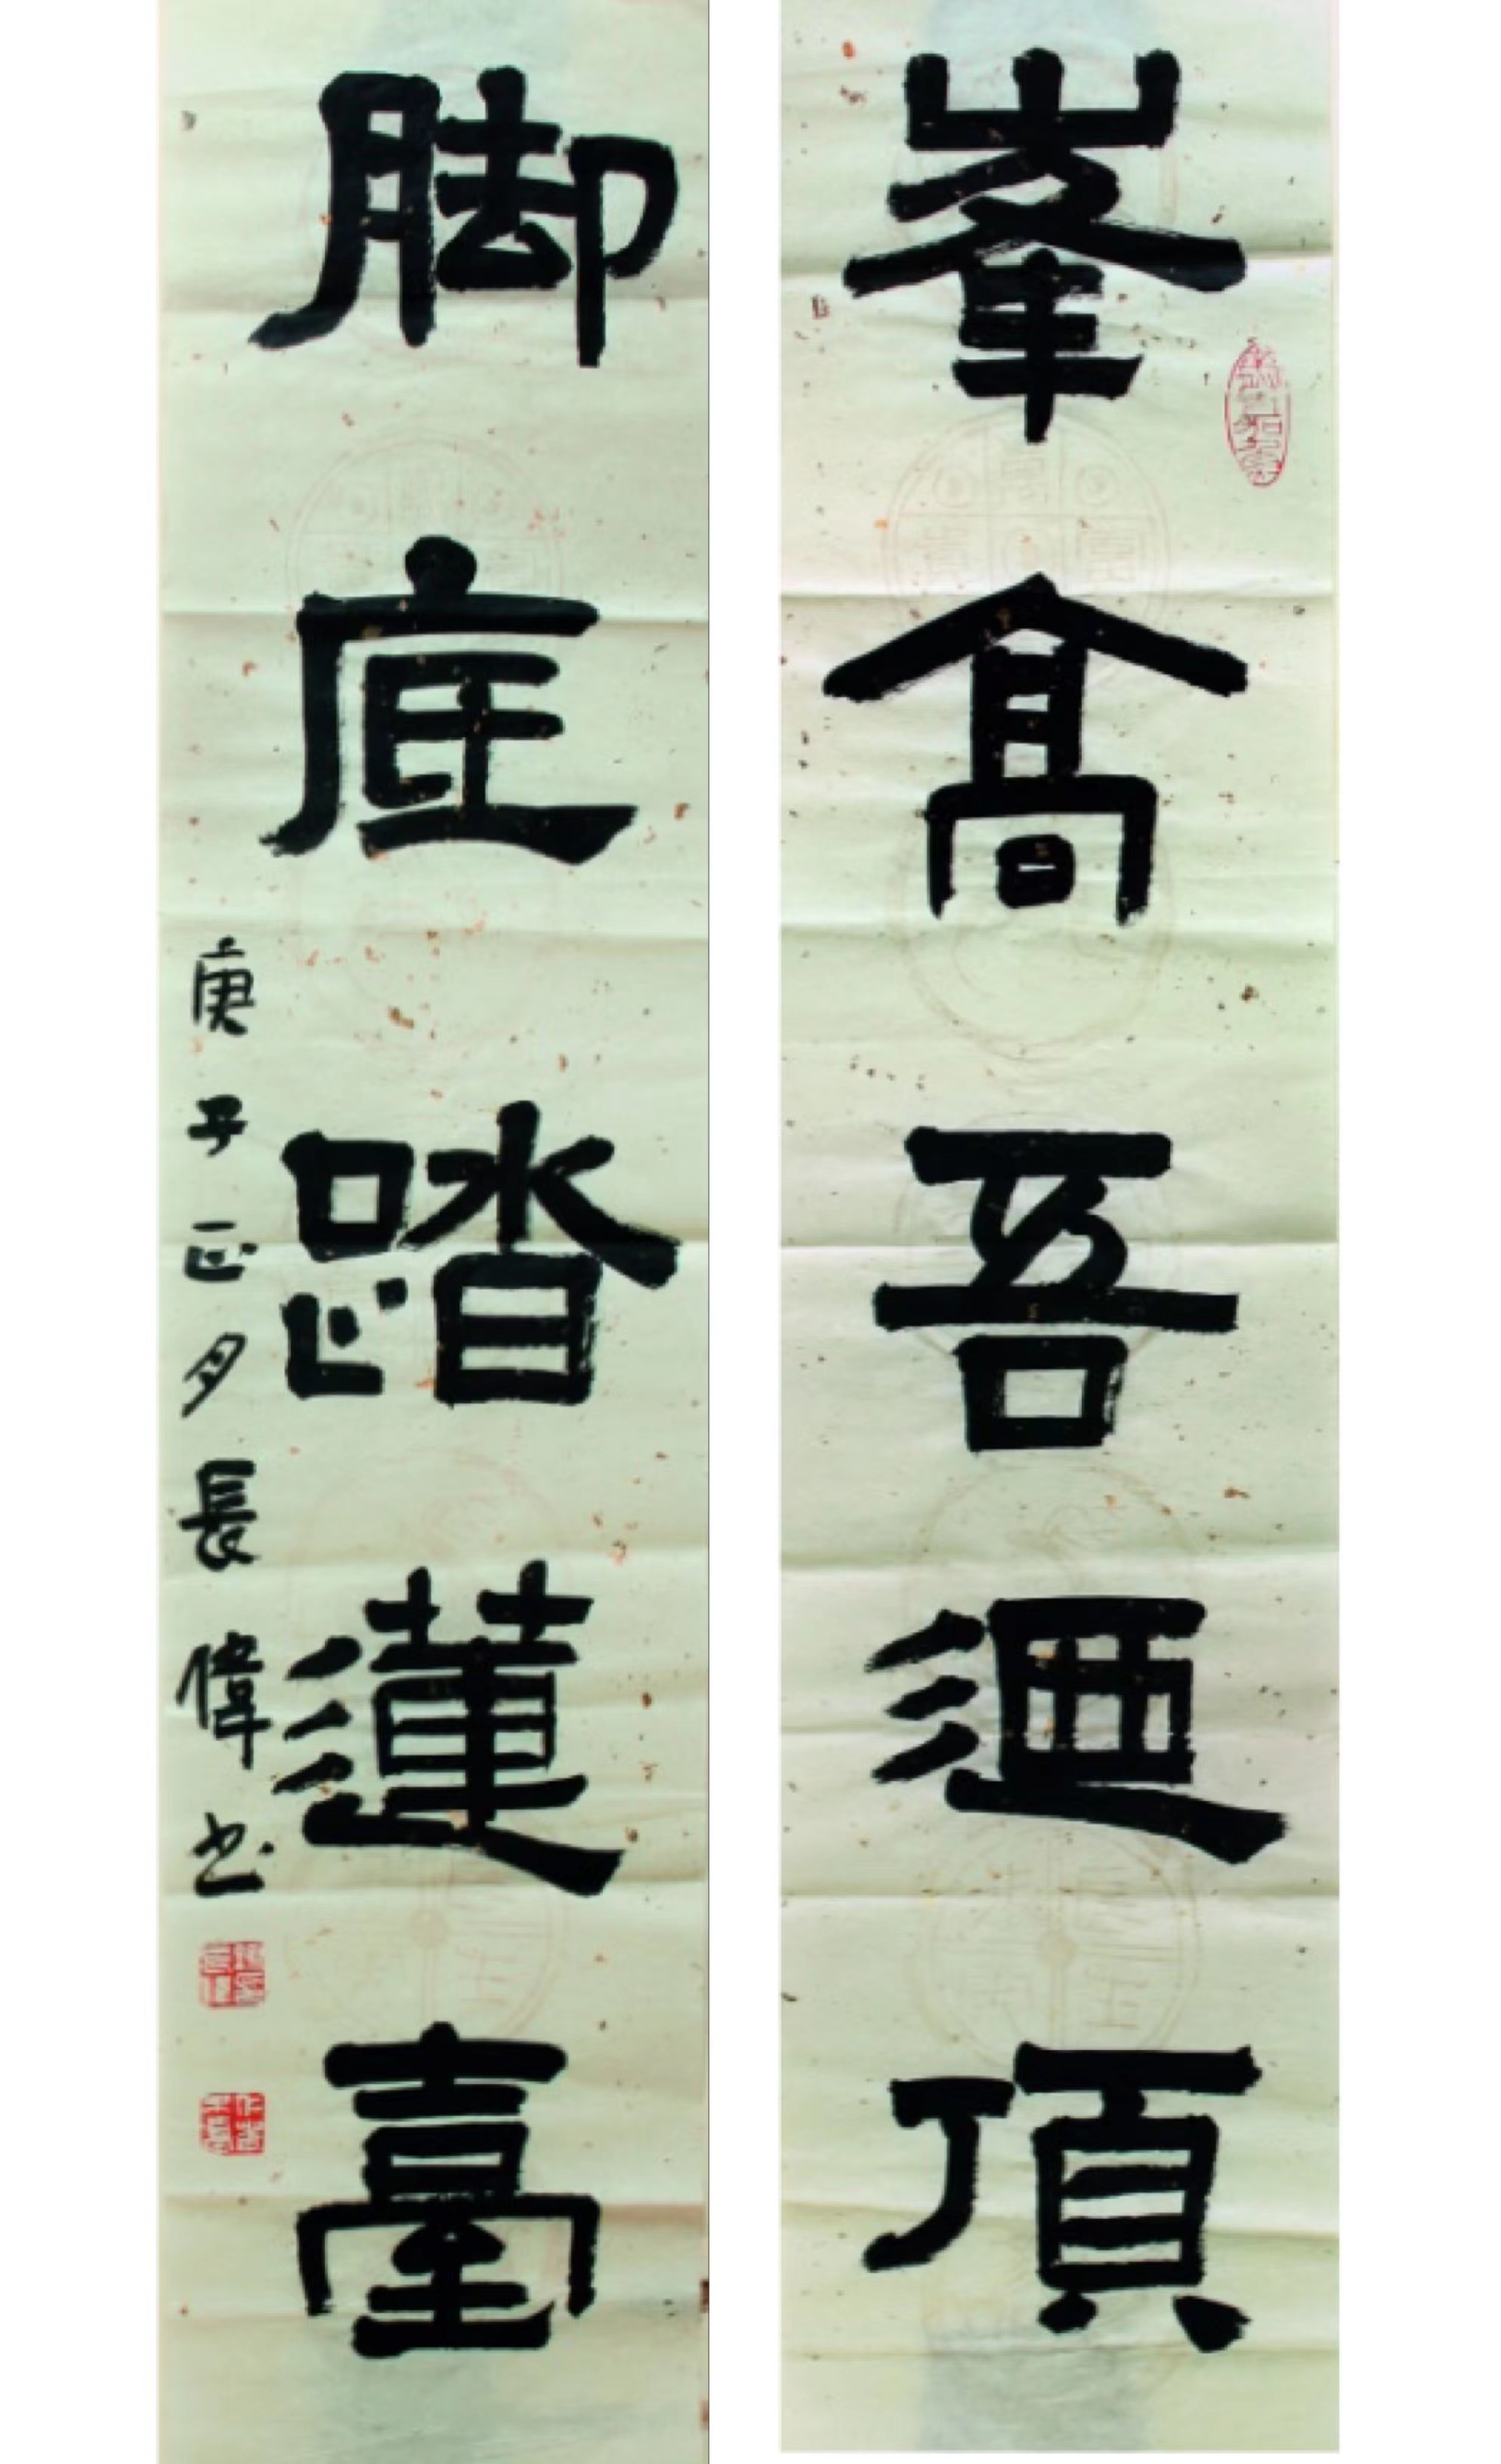 峯高吾迺頂
脚底踏蓮臺
庚子正月長偉书